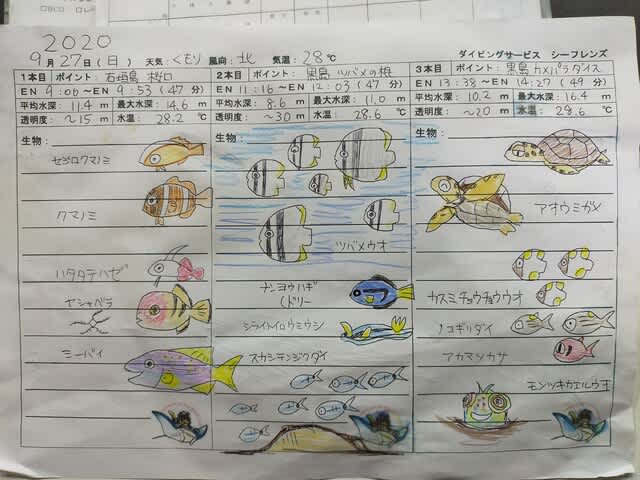 2020
9月27日(日) 天気:くもり 風向:北 気温:28℃ ダイビングサービス シーフレンズ
1本目 ポイント: 石垣島 桜口
EN 9:00 〜EN 9:53 (47 分)
平均水深: 11.4 m 最大水深: 14.6 m
透明度: 〜15 m 水温: 28.2 ℃
生物:
セジロクマノミ
クマノミ
ハタタテハゼ
ヤシャベラ
ミーバイ
2本目 ポイント: 黒島 ツバメの根
EN 11:16 〜EN 12:03 (47 分)
平均水深: 8.6 m 最大水深: 11.0 m
透明度: 〜30 m 水温: 28.6 ℃
生物:
ツバメウオ
ナンヨウハギ
(ドリー
シライトイロウミウシ
スカシテンジクダイ
3本目 ポイント: 黒島 カメパラダイス
EN 13:38 〜EN 14:27 (49 分)
平均水深: 10.2 m 最大水深: 16.4 m
透明度: 〜20 m 水温: 28.6 ℃
生物:
アオウミガメ
カスミチョウチョウウオ
ノコギリダイ
アカマツカサ
モンツキカエルウオ